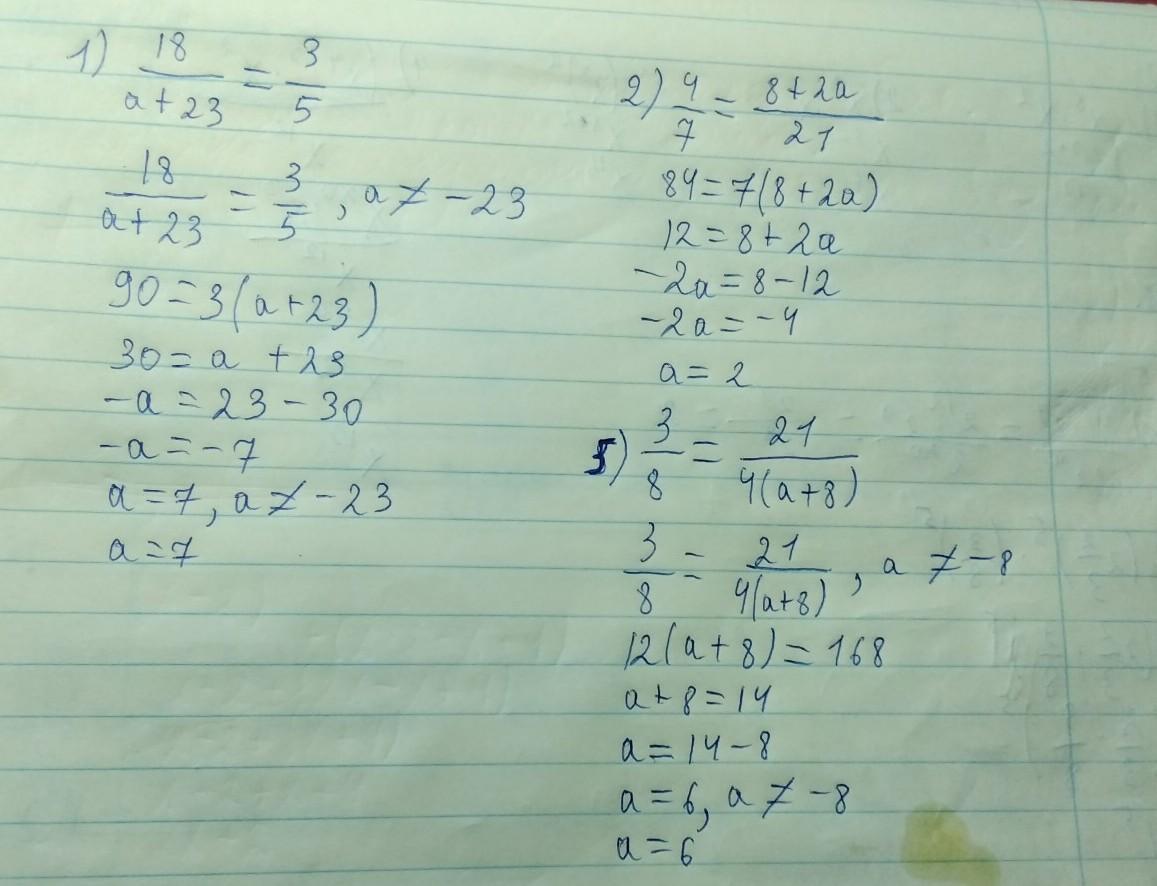 1) 18/(a+23) = 3/5
18/(a+23) = 3/5, a ≠ -23
90 = 3(a+23)
30 = a + 23
-a = 23 - 30
-a = -7
a = 7, a ≠ -23
a = 7
2) 4/7 = (8+2a)/21
84 = 7(8+2a)
12 = 8 + 2a
-2a = 8 - 12
-2a = -4
a = 2
5) 3/8 = 21/(4(a+8))
3/8 = 21/(4(a+8)), a ≠ -8
12(a+8) = 168
a + 8 = 14
a = 14 - 8
a = 6, a ≠ -8
a = 6